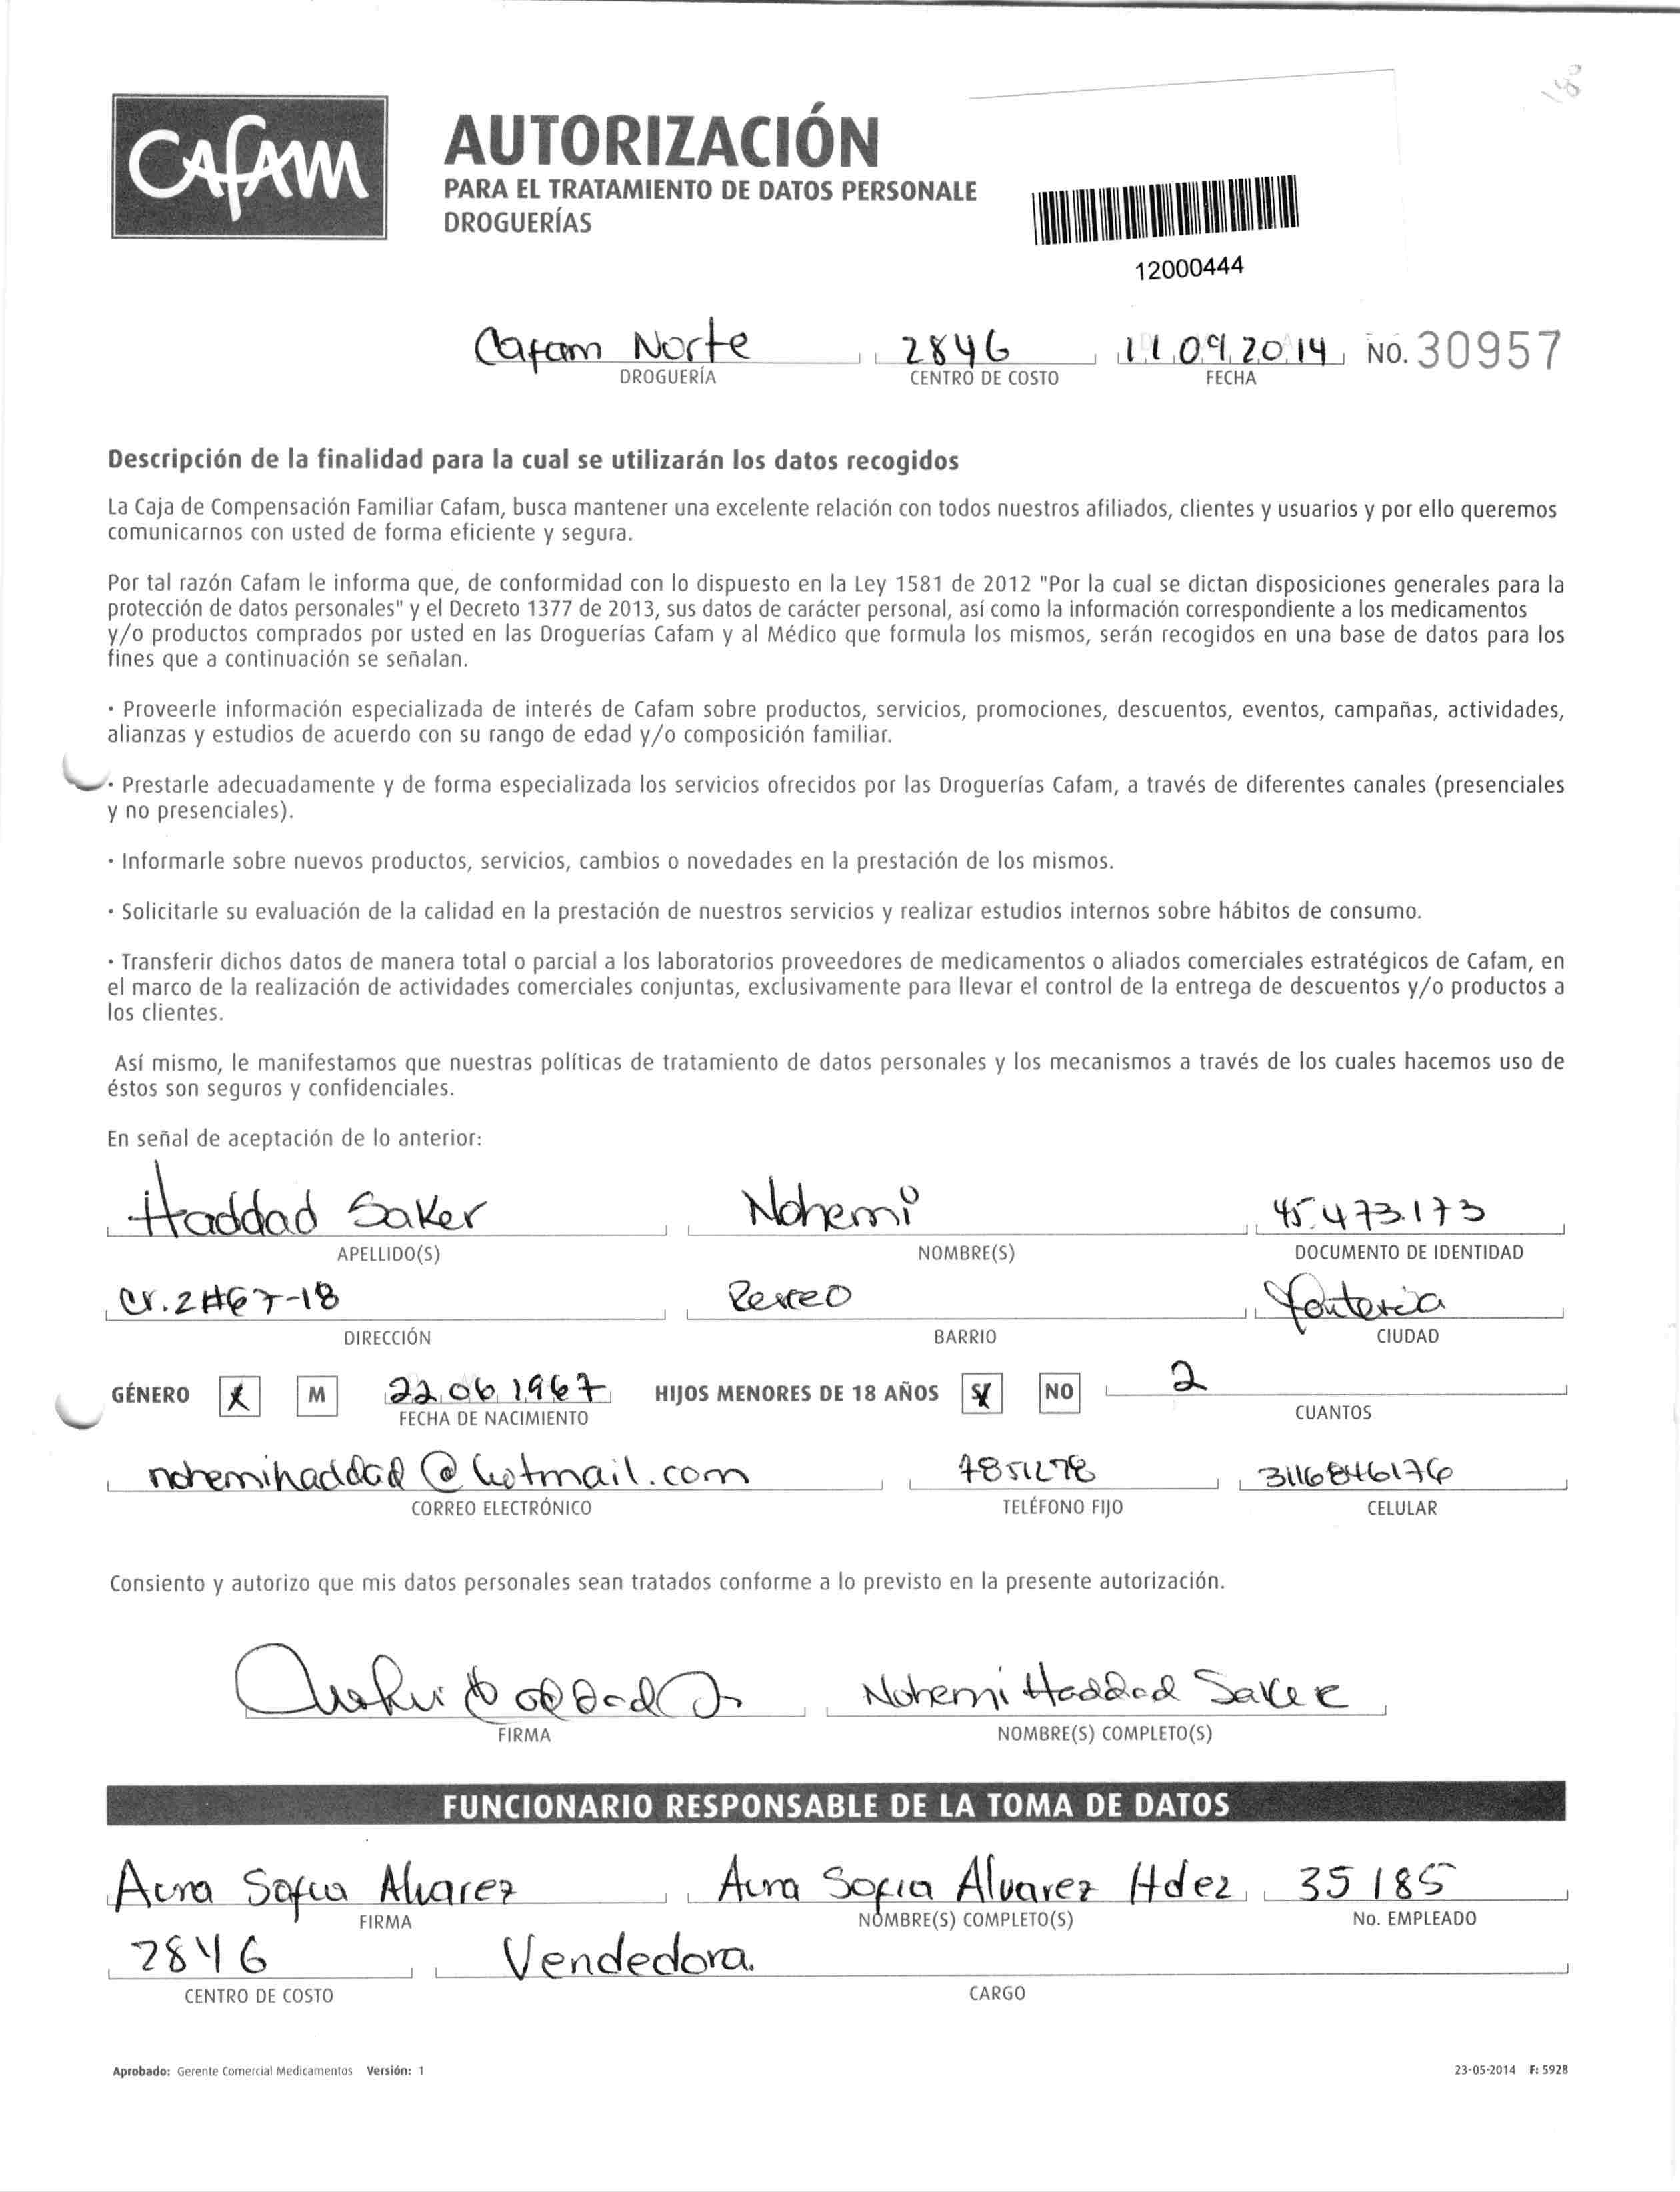 CAfAM
AUTORIZACIÓN
PARA EL TRATAMIENTO DE DATOS PERSONALE
DROGUERÍAS
12000444
Cafam Norte 2846 11 09 2014 NO. 30957
DROGUERÍA CENTRO DE COSTO FECHA
Descripción de la finalidad para la cual se utilizarán los datos recogidos
La Caja de Compensación Familiar Cafam, busca mantener una excelente relación con todos nuestros afiliados, clientes y usuarios y por ello queremos
comunicarnos con usted de forma eficiente y segura.
Por tal razón Cafam le informa que, de conformidad con lo dispuesto en la Ley 1581 de 2012 "Por la cual se dictan disposiciones generales para la
protección de datos personales" y el Decreto 1377 de 2013, sus datos de carácter personal, así como la información correspondiente a los medicamentos
y/o productos comprados por usted en las Droguerías Cafam y al Médico que formula los mismos, serán recogidos en una base de datos para los
fines que a continuación se señalan.
· Proveerle información especializada de interés de Cafam sobre productos, servicios, promociones, descuentos, eventos, campañas, actividades,
alianzas y estudios de acuerdo con su rango de edad y/o composición familiar.
· Prestarle adecuadamente y de forma especializada los servicios ofrecidos por las Droguerías Cafam, a través de diferentes canales (presenciales
y no presenciales).
· Informarle sobre nuevos productos, servicios, cambios o novedades en la prestación de los mismos.
· Solicitarle su evaluación de la calidad en la prestación de nuestros servicios y realizar estudios internos sobre hábitos de consumo.
· Transferir dichos datos de manera total o parcial a los laboratorios proveedores de medicamentos o aliados comerciales estratégicos de Cafam, en
el marco de la realización de actividades comerciales conjuntas, exclusivamente para llevar el control de la entrega de descuentos y/o productos a
los clientes.
Así mismo, le manifestamos que nuestras políticas de tratamiento de datos personales y los mecanismos a través de los cuales hacemos uso de
éstos son seguros y confidenciales.
En señal de aceptación de lo anterior:
Haddad Saker Nohemi 45.473.173
APELLIDO(S) NOMBRE(S) DOCUMENTO DE IDENTIDAD
Cr. 2 #67-18
DIRECCIÓN BARRIO CIUDAD
GÉNERO M 22 06 1967 HIJOS MENORES DE 18 AÑOS SI NO 2
FECHA DE NACIMIENTO CUANTOS
nohemihaddad@hotmail.com 7851278 3116846176
CORREO ELECTRÓNICO TELÉFONO FIJO CELULAR
Consiento y autorizo que mis datos personales sean tratados conforme a lo previsto en la presente autorización.
Nohemi Haddad Saker
FIRMA NOMBRE(S) COMPLETO(S)
FUNCIONARIO RESPONSABLE DE LA TOMA DE DATOS
Aura Sofia Alvarez Aura Sofia Alvarez Hdez 35185
FIRMA NOMBRE(S) COMPLETO(S) No. EMPLEADO
2846 Vendedora.
CENTRO DE COSTO CARGO
Aprobado: Gerente Comercial Medicamentos Versión: 1 23-05-2014 F: 5928